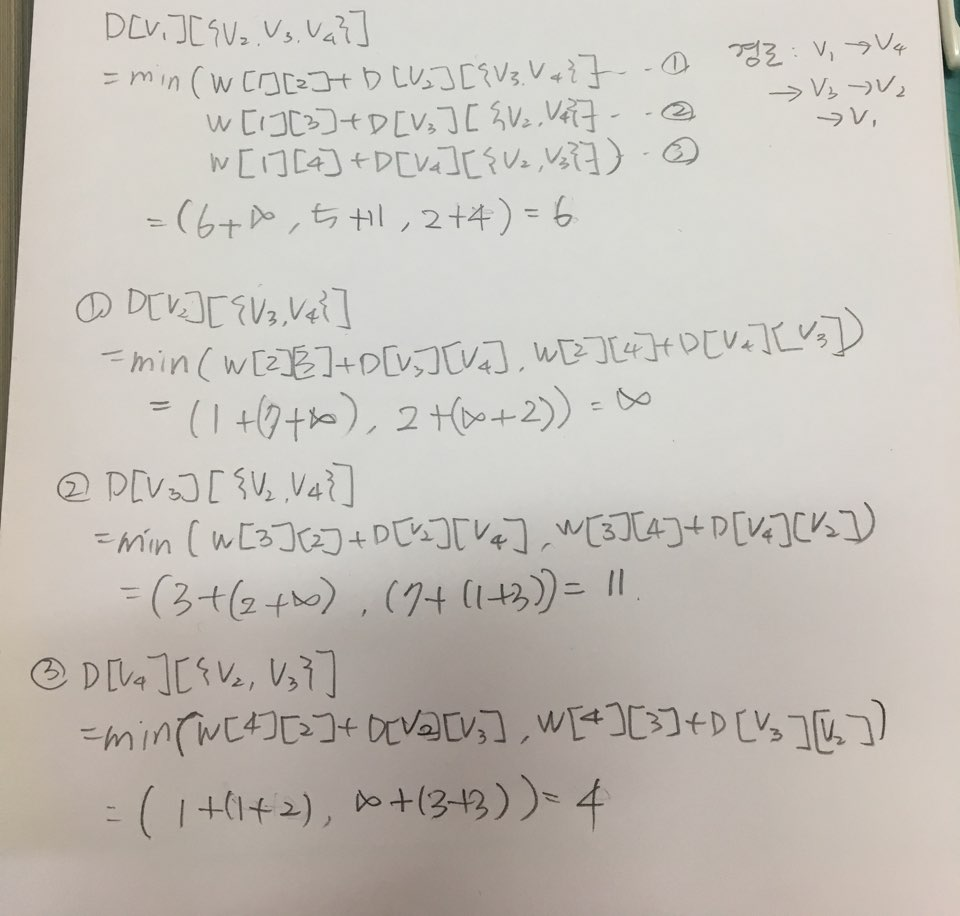 D[V₁][{V₂,V₃,V₄}]
= min ( W[1][2]+D[V₂][{V₃,V₄}] - - ①
W[1][3]+D[V₃][{V₂,V₄}] - - ②
W[1][4]+D[V₄][{V₂,V₃}] ) - ③
= (6+∞, 5+11, 2+4) = 6
경로: V₁ → V₄
→ V₃ → V₂
→ V₁
① D[V₂][{V₃,V₄}]
= min ( W[2][3]+D[V₃][V₄], W[2][4]+D[V₄][V₃])
= (1+(7+∞), 2+(∞+2)) = ∞
② D[V₃][{V₂,V₄}]
= min ( W[3][2]+D[V₂][V₄], W[3][4]+D[V₄][V₂])
= (3+(2+∞), (7+(1+3)) = 11.
③ D[V₄][{V₂, V₃}]
= min( W[4][2]+D[V₂][V₃], W[4][3]+D[V₃][V₂])
= ( 1+(1+2), ∞+(3+3)) = 4